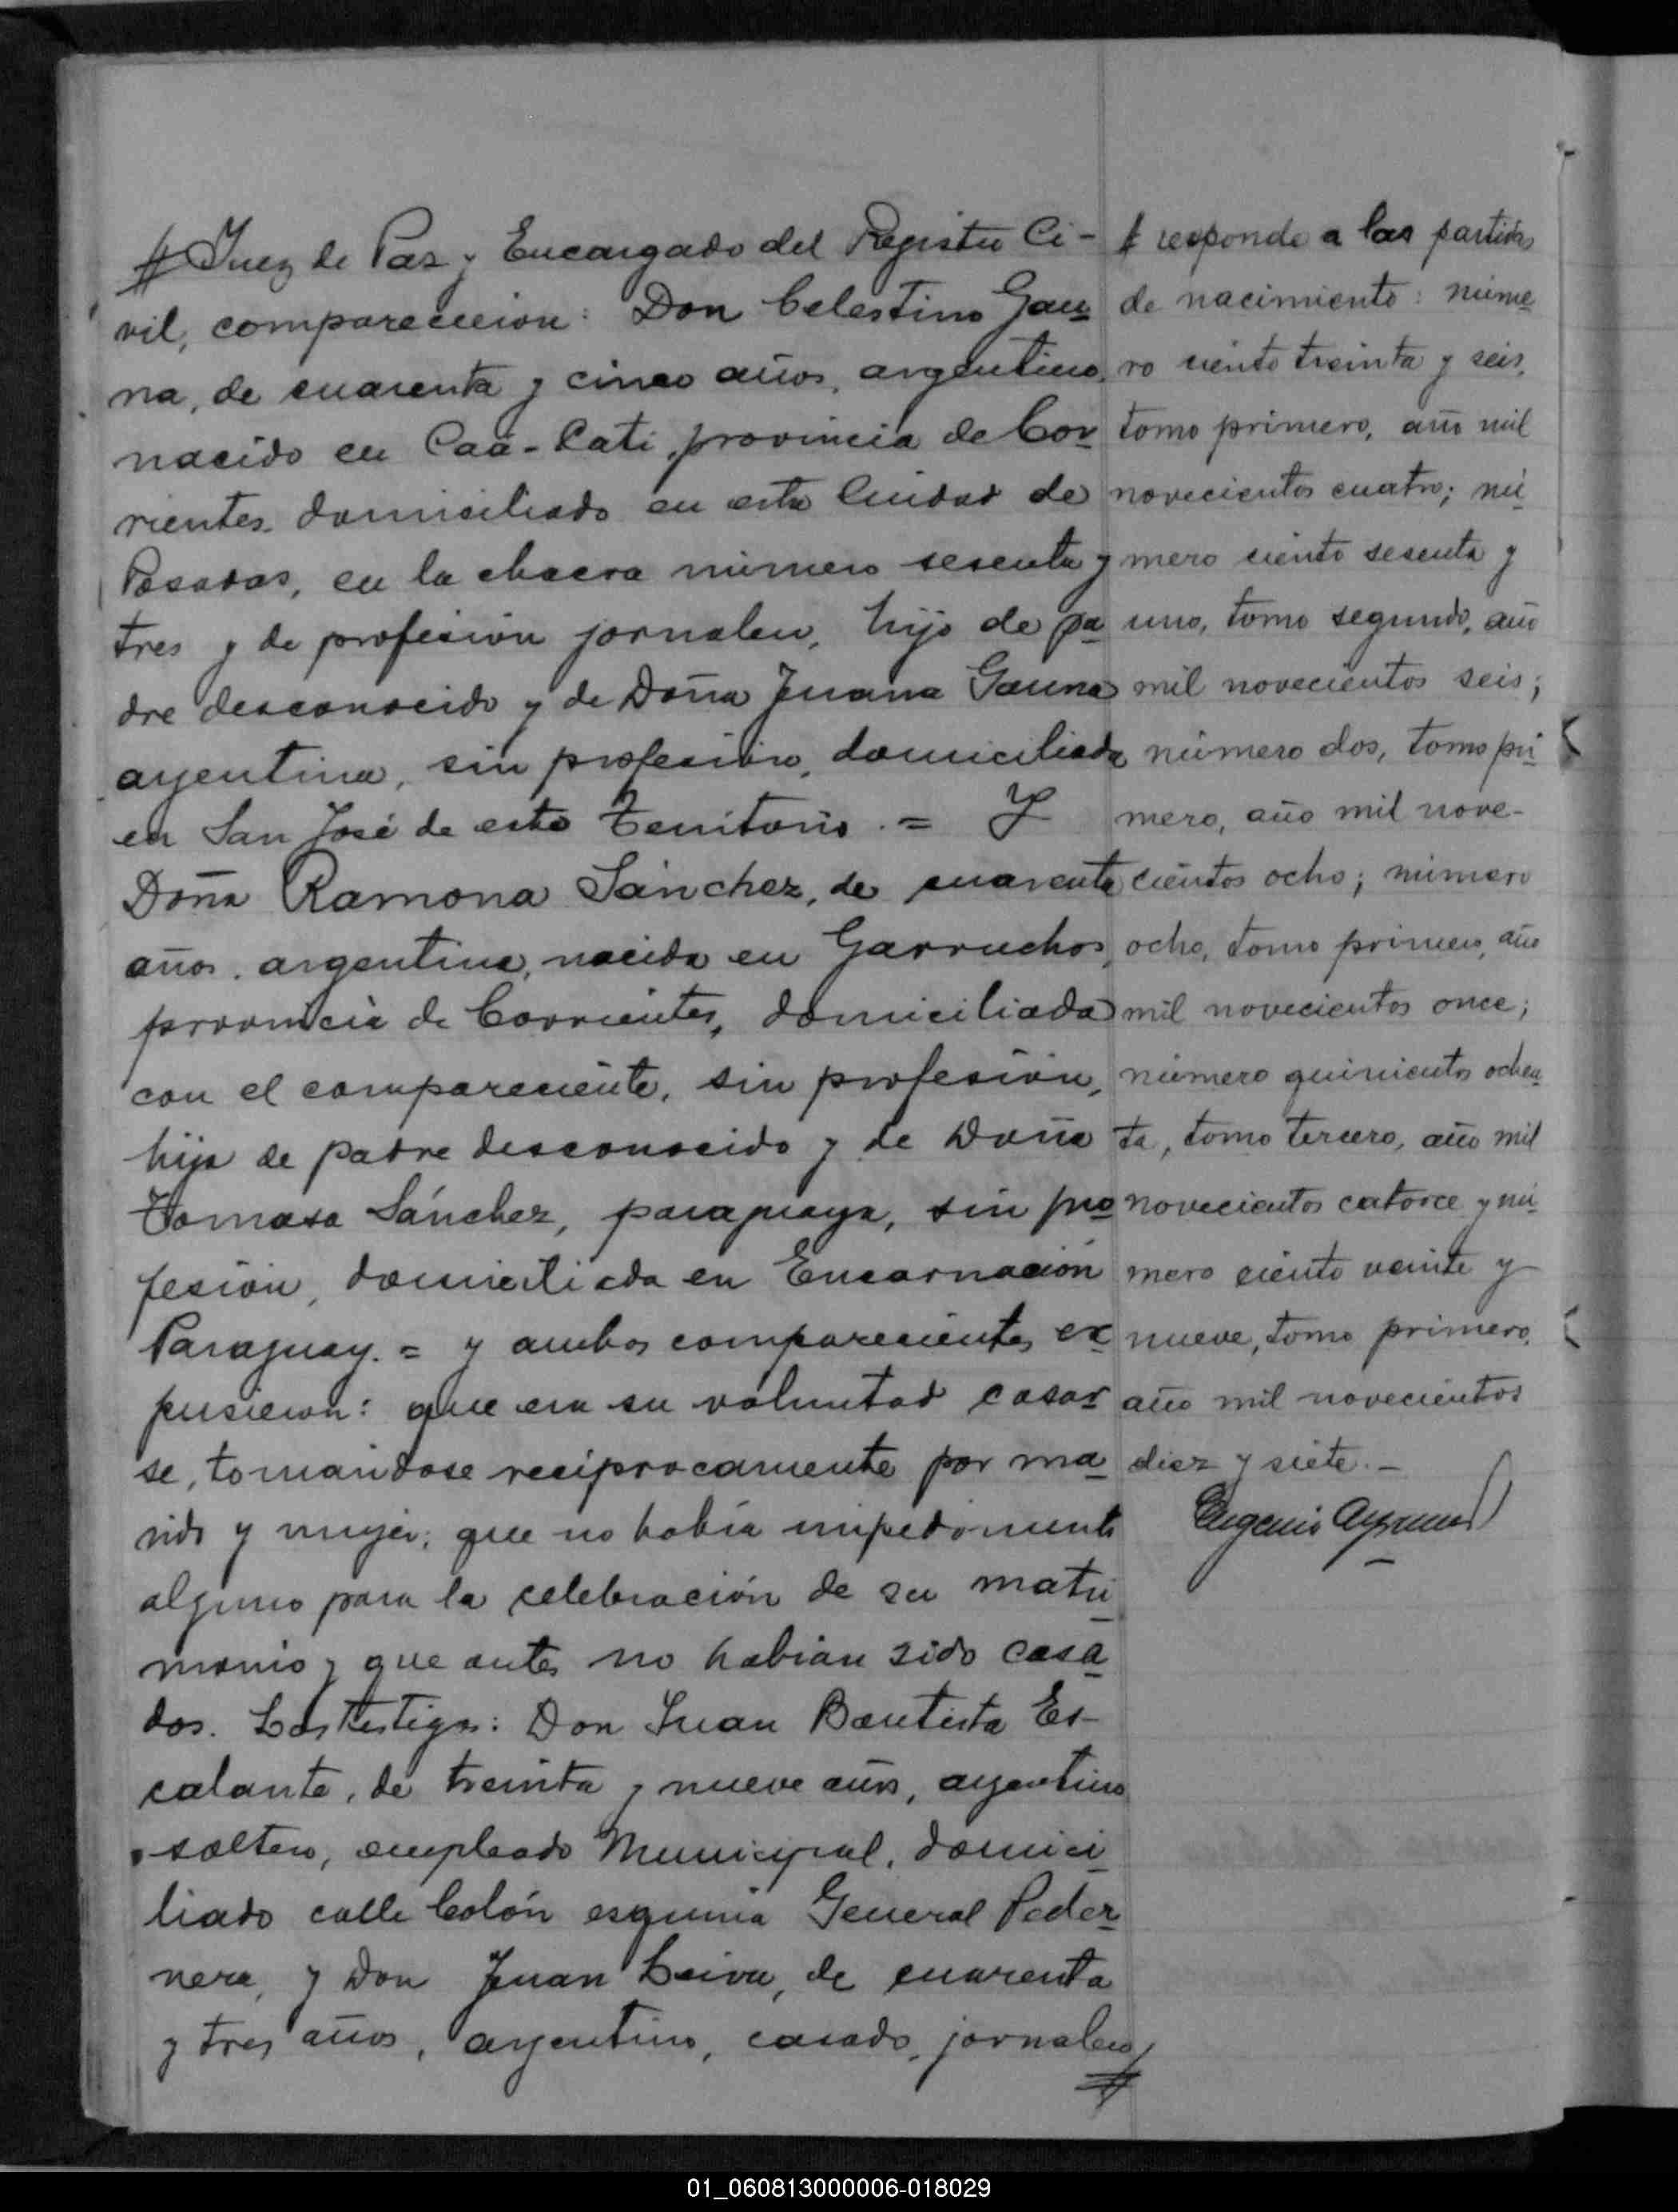 Juez de Paz y Encargado del Registro Ci-
vil, comparecieron: Don Celestino Gau
na, de cuarenta y cinco años, argentino,
nacido en Caá-Catí, provincia de Cor
rientes domiciliado en esta Ciudad de
Posadas, en la chacra número sesenta y
tres y de profesión jornalero, hijo de pa
dre desconocido y de Doña Juana Gauna
argentina, sin profesión, domiciliada
en San José de este Territorio. = Y
Doña Ramona Sánchez, de cuarenta
años, argentina, nacida en Garruchos,
provincia de Corrientes, domiciliada
con el compareciente, sin profesión,
hija de padre desconocido y de Doña
Tomasa Sánchez, paraguaya, sin pro
fesión, domiciliada en Encarnación
Paraguay. = y ambos comparecientes ex
pusieron: que era su voluntad casar
se, tomandose reciprocamente por ma
rido y mujer; que no había impedimento
alguno para la celebración de su matri
monio y que antes no habían sido casa
dos. Los testigos: Don Juan Bautista Es-
calante, de treinta y nueve años, argentino
soltero, empleado Municipal, domici
liado calle Colón esquina General Peder
nera, y Don Juan Leiva, de cuarenta
y tres años, argentino, casado, jornalero,
responde a las partidas
de nacimiento: núme
ro ciento treinta y seis,
tomo primero, año mil
novecientos cuatro; nú
mero ciento sesenta y
uno, tomo segundo, año
mil novecientos seis;
número dos, tomo pri
mero, año mil nove-
cientos ocho; número
ocho, tomo primero, año
mil novecientos once;
número quinientos ochen
ta, tomo tercero, año mil
novecientos catorce y nú
mero ciento veinte y
nueve, tomo primero,
año mil novecientos
diez y siete.-
Eugenio
01_060813000006-018029